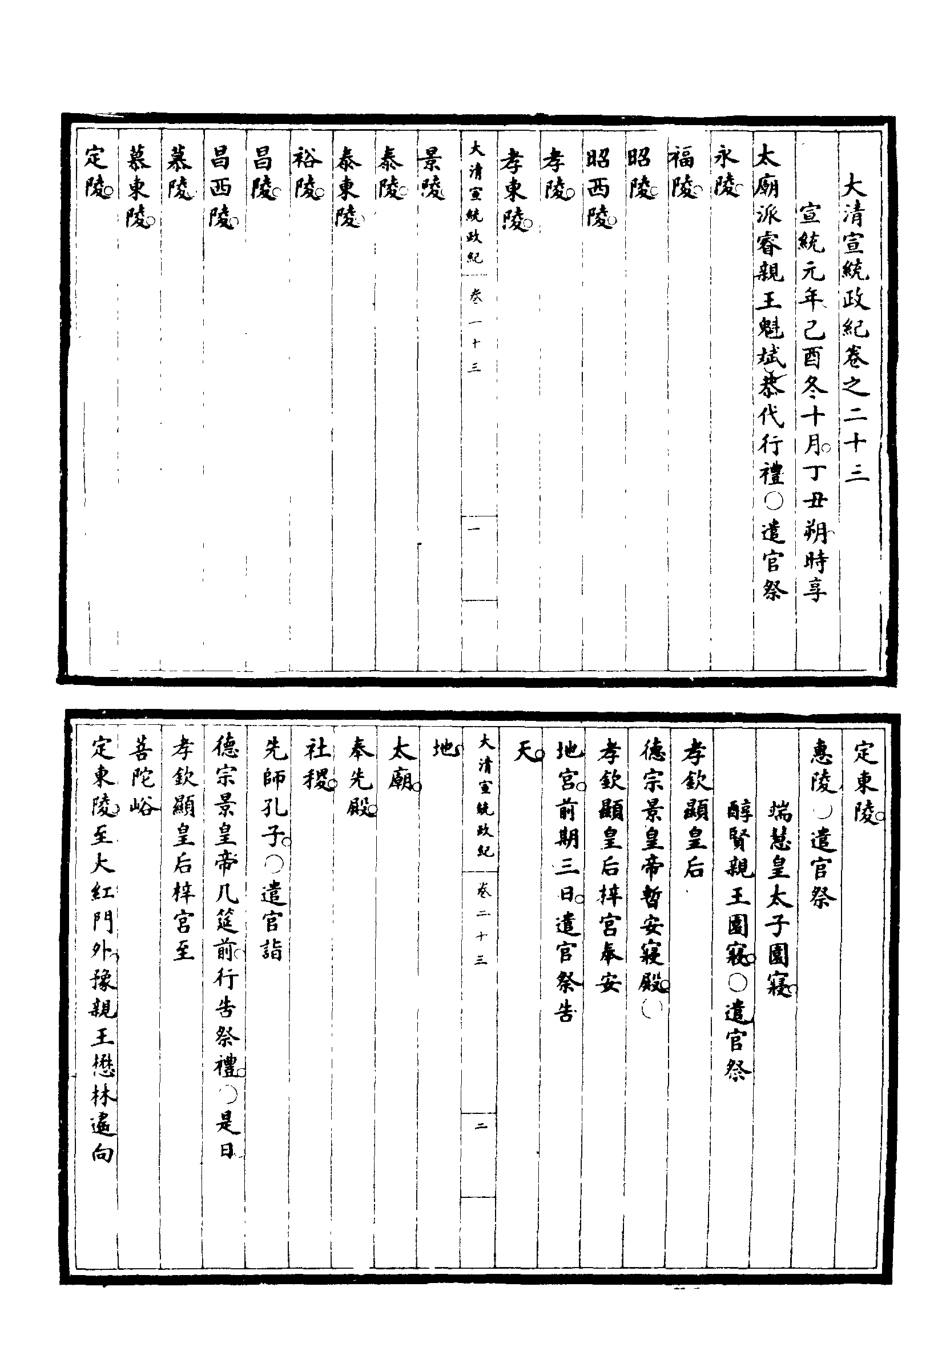 大清宣統政紀卷之二十三
宣統元年己酉冬十月。丁丑朔。時享
太廟派睿親王魁斌恭代行禮〇遣官祭
永陵。
福陵。
昭陵。
昭西陵。
孝陵。
孝東陵。
大清宣統政紀 卷二十三 一
景陵
泰陵。
泰東陵。
裕陵。
昌陵。
昌西陵。
慕陵。
慕東陵。
定陵。
定東陵。
惠陵〇遣官祭
端慧皇太子園寢。
醇賢親王園寢。〇遣官祭
孝欽顯皇后
德宗景皇帝暫安寢殿。〇
孝欽顯皇后梓宮奉安
地宮。前期三日。遣官祭告
天。
大清宣統政紀 卷二十三 二
地。
太廟。
奉先殿。
社稷。
先師孔子。〇遣官詣
德宗景皇帝几筵前。行告祭禮。〇是日。
孝欽顯皇后梓宮至
菩陀峪
定東陵。至大紅門外。豫親王懋林遙向